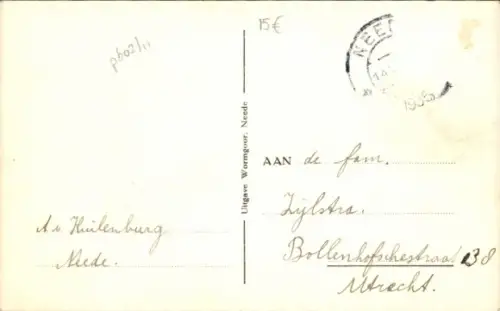 15€
pb02/11
NEED
14
1935
Uitgave Wormgoor, Neede
AAN de fam.
Zijlstra.
Bollenhofschestraat 138
Utrecht.
A. v Huilenburg
Neede.